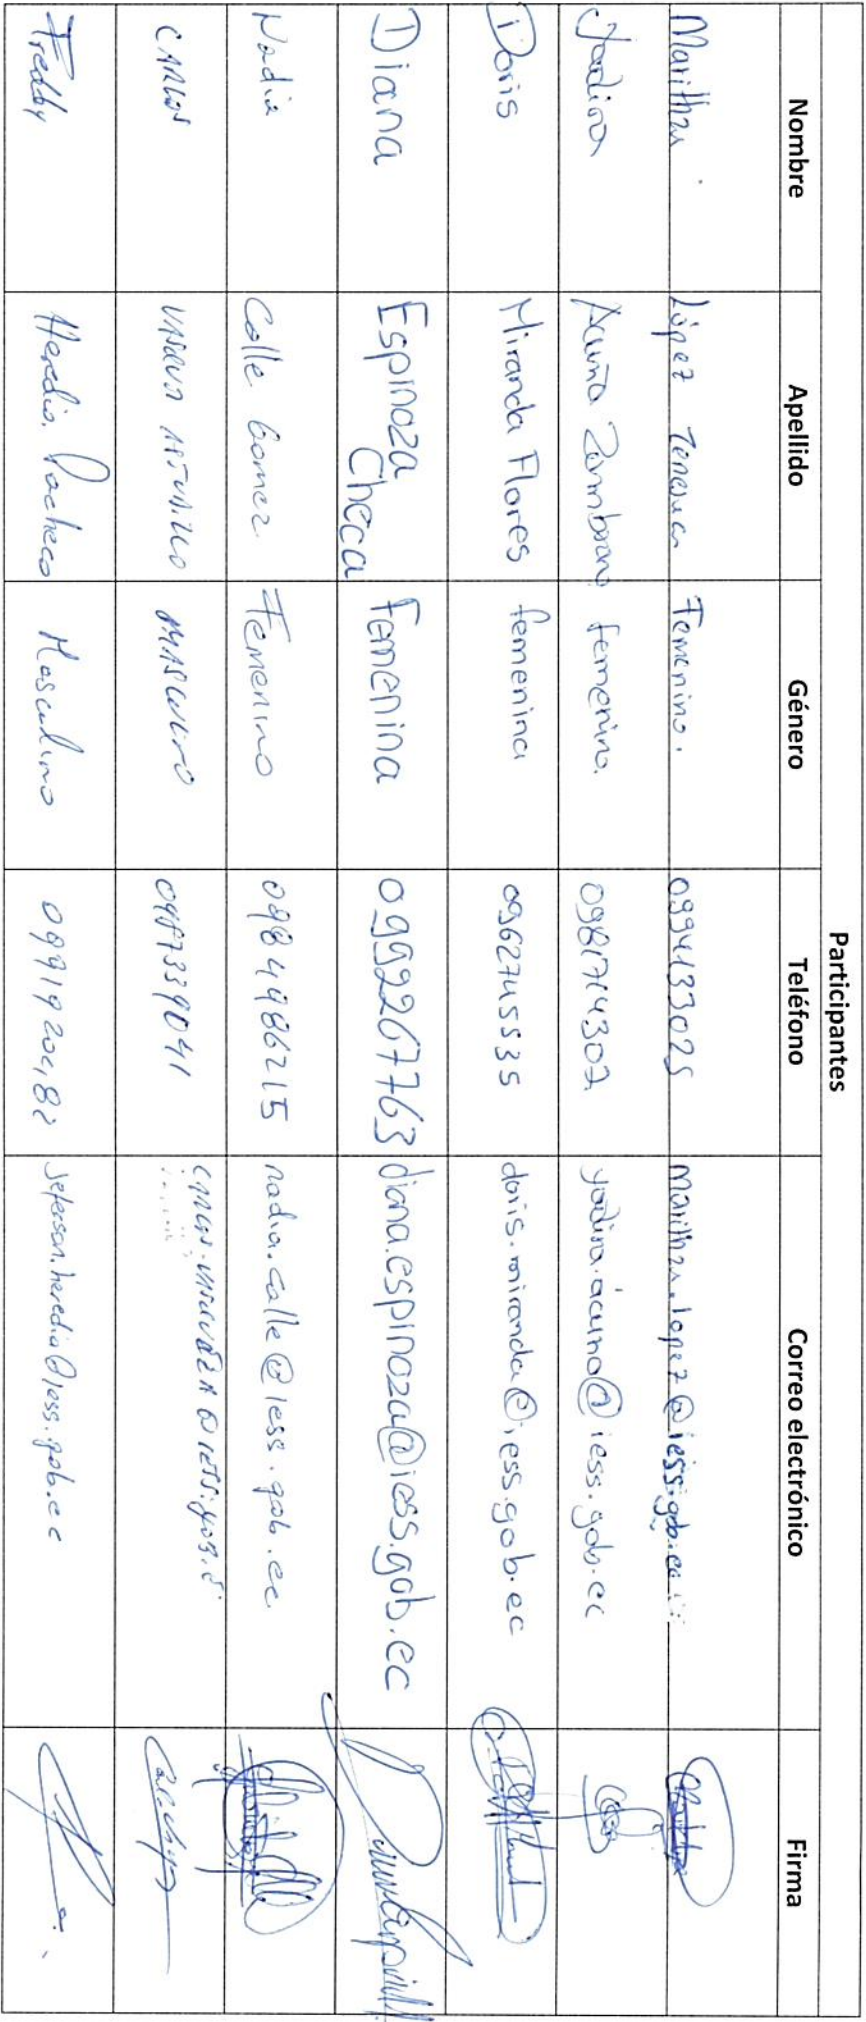 Participantes
Nombre Apellido Género Teléfono Correo electrónico Firma
Marithza López Femenino. 0994133025 marithza.lopez@iess.gob.ec
Yadira Acuña Zambrano femenina 0981714302 yadira.acuna@iess.gob.ec
Doris Miranda Flores femenina 0962745535 doris.miranda@iess.gob.ec
Diana Espinoza Checa Femenina 0992267763 diana.espinoza@iess.gob.ec
Nadia Calle Gomez Femenino 0984986215 nadia.calle@iess.gob.ec
CARLOS MASCULINO 0987339041
Freddy Heredia Pacheco Masculino jeferson.heredia@iess.gob.ec